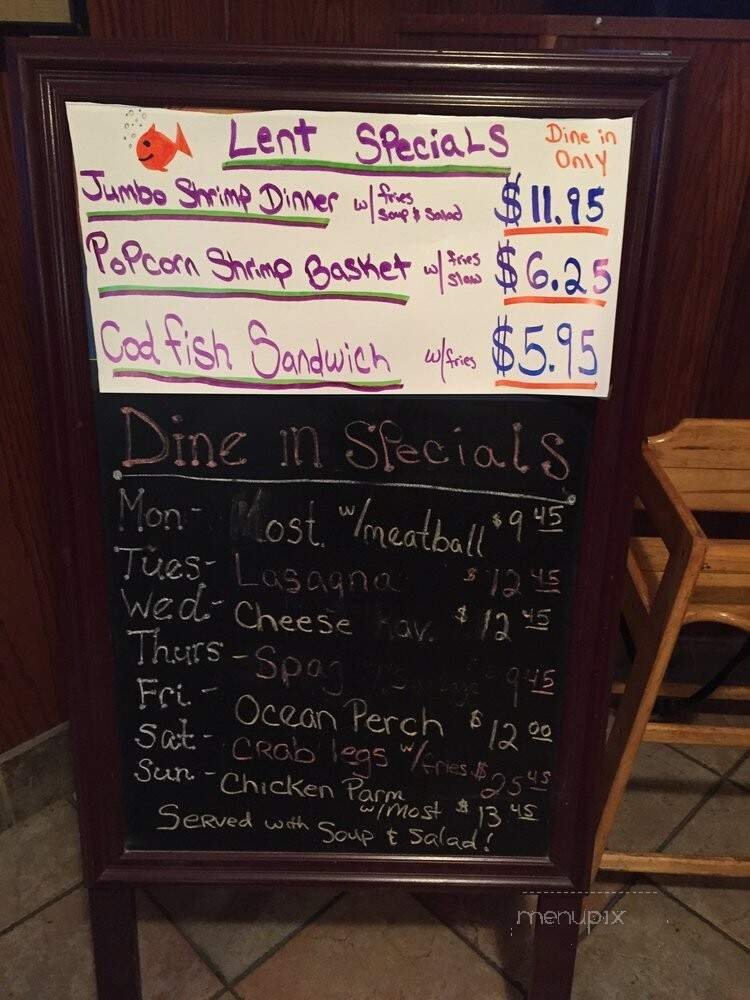 Lent Specials
Dine in
Only
Jumbo Shrimp Dinner w/ fries
soup & salad $11.95
Popcorn Shrimp Basket w/ fries
slaw $6.25
Cod fish Sandwich w/fries $5.95
Dine in Specials
Mon- Most. w/meatball $9 45
Tues- Lasagna $12 45
Wed- Cheese Rav. $12 45
Thurs- Spag 9 45
Fri- Ocean Perch $12 00
Sat- Crab legs w/fries $25 45
Sun- Chicken Parm
w/Most $13 45
Served with Soup & Salad!
menupix